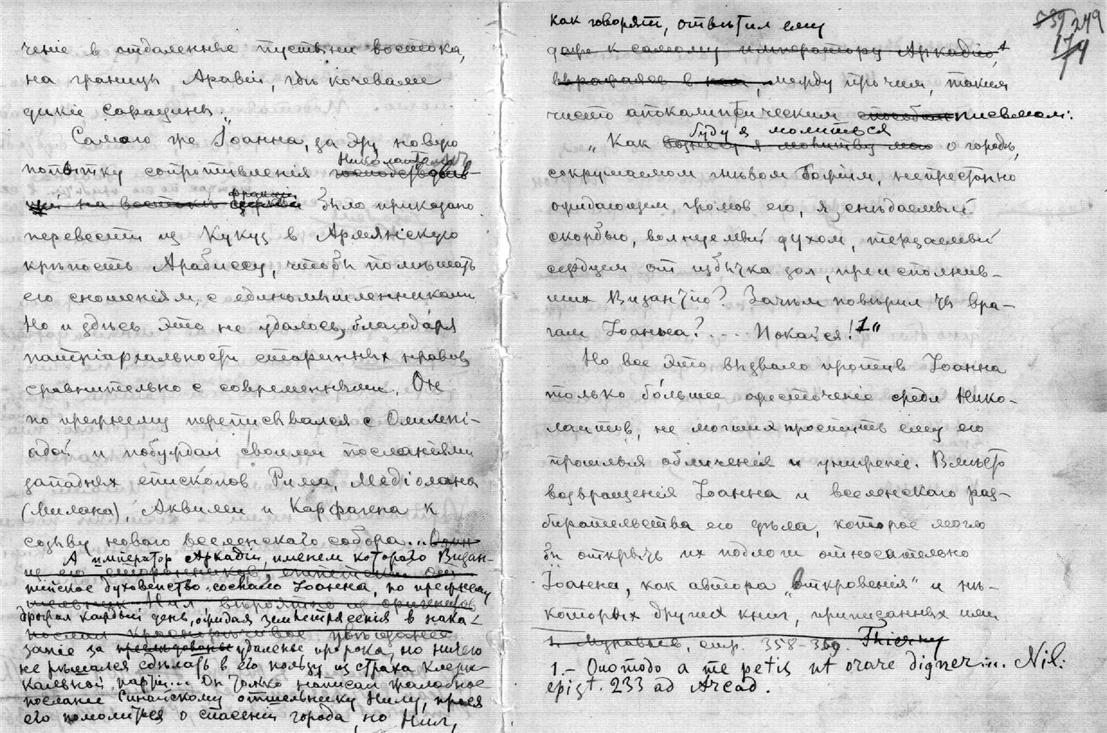 ченіе в отдаленные пустыни востока,
на границѣ Аравіи, гдѣ кочевали
дикіе сарацины.
Самого же Іоанна за эту новую
попытку сопротивленія
Николаитской
фракціи было приказано
перевести из Кукуз в Армянскую
крѣпость Арабиссу, чтобы помѣшать
его сношеніям с единомышленниками
Но и здѣсь это не удалось, благодаря
патріархальности старинных нравов
сравнительно с современными. Он
по прежнему переписывался с Олимпі-
адой и побуждал своими посланіями
западных епископов Рима, Медіолана
(Милана) Аквилеи и Карфагена к
созыву новаго вселенскаго собора...
А император Аркадій, именем котораго Визан-
тійское духовенство сослало Іоанна, по прежнему
дрожал каждый день, ожидая землетрясенія в нака-
заніе за удаленіе пророка, но ничего
не рѣшался сдѣлать в его пользу из страха клери-
кальной партіи... Он только написал жалобное
посланіе Синайскому отшельнику Нилу, прося
его помолиться о спасеніи города, но Нил,
249
как говорят, отвѣтил ему
даже к самому императору Аркадію
между прочим, таким
чисто апокалиптическим письмом:
буду я молиться
„Как о городѣ,
сокрушаемом гнѣвом Божіим, непрестанно
ожидающем громов его, я, снѣдаемый
скорбью, волнуемый духом, терзаемый
сердцем от избытка зол, преисполнив-
ших Византію? Зачѣм повѣрил ты вра-
гам Іоанна?.... Покайся!1“
Но все это вызвало против Іоанна
только бо́льшее ожесточеніе среди Нико-
лаитов, не могших простить ему его
прошлыя обличенія и униженіе. Вмѣсто
возвращенія Іоанна и вселенскаго раз-
бирательства его дѣла, которое могло
бы открыть их подлоги относительно
Іоанна, как автора „Откровенія" и нѣ-
которых других книг, приписанных ими
1. Муравьев, стр. 358-359. Thierry
1.- Quomodo a me petis ut orare digner... Nil.
epist. 233 ad Arcad.